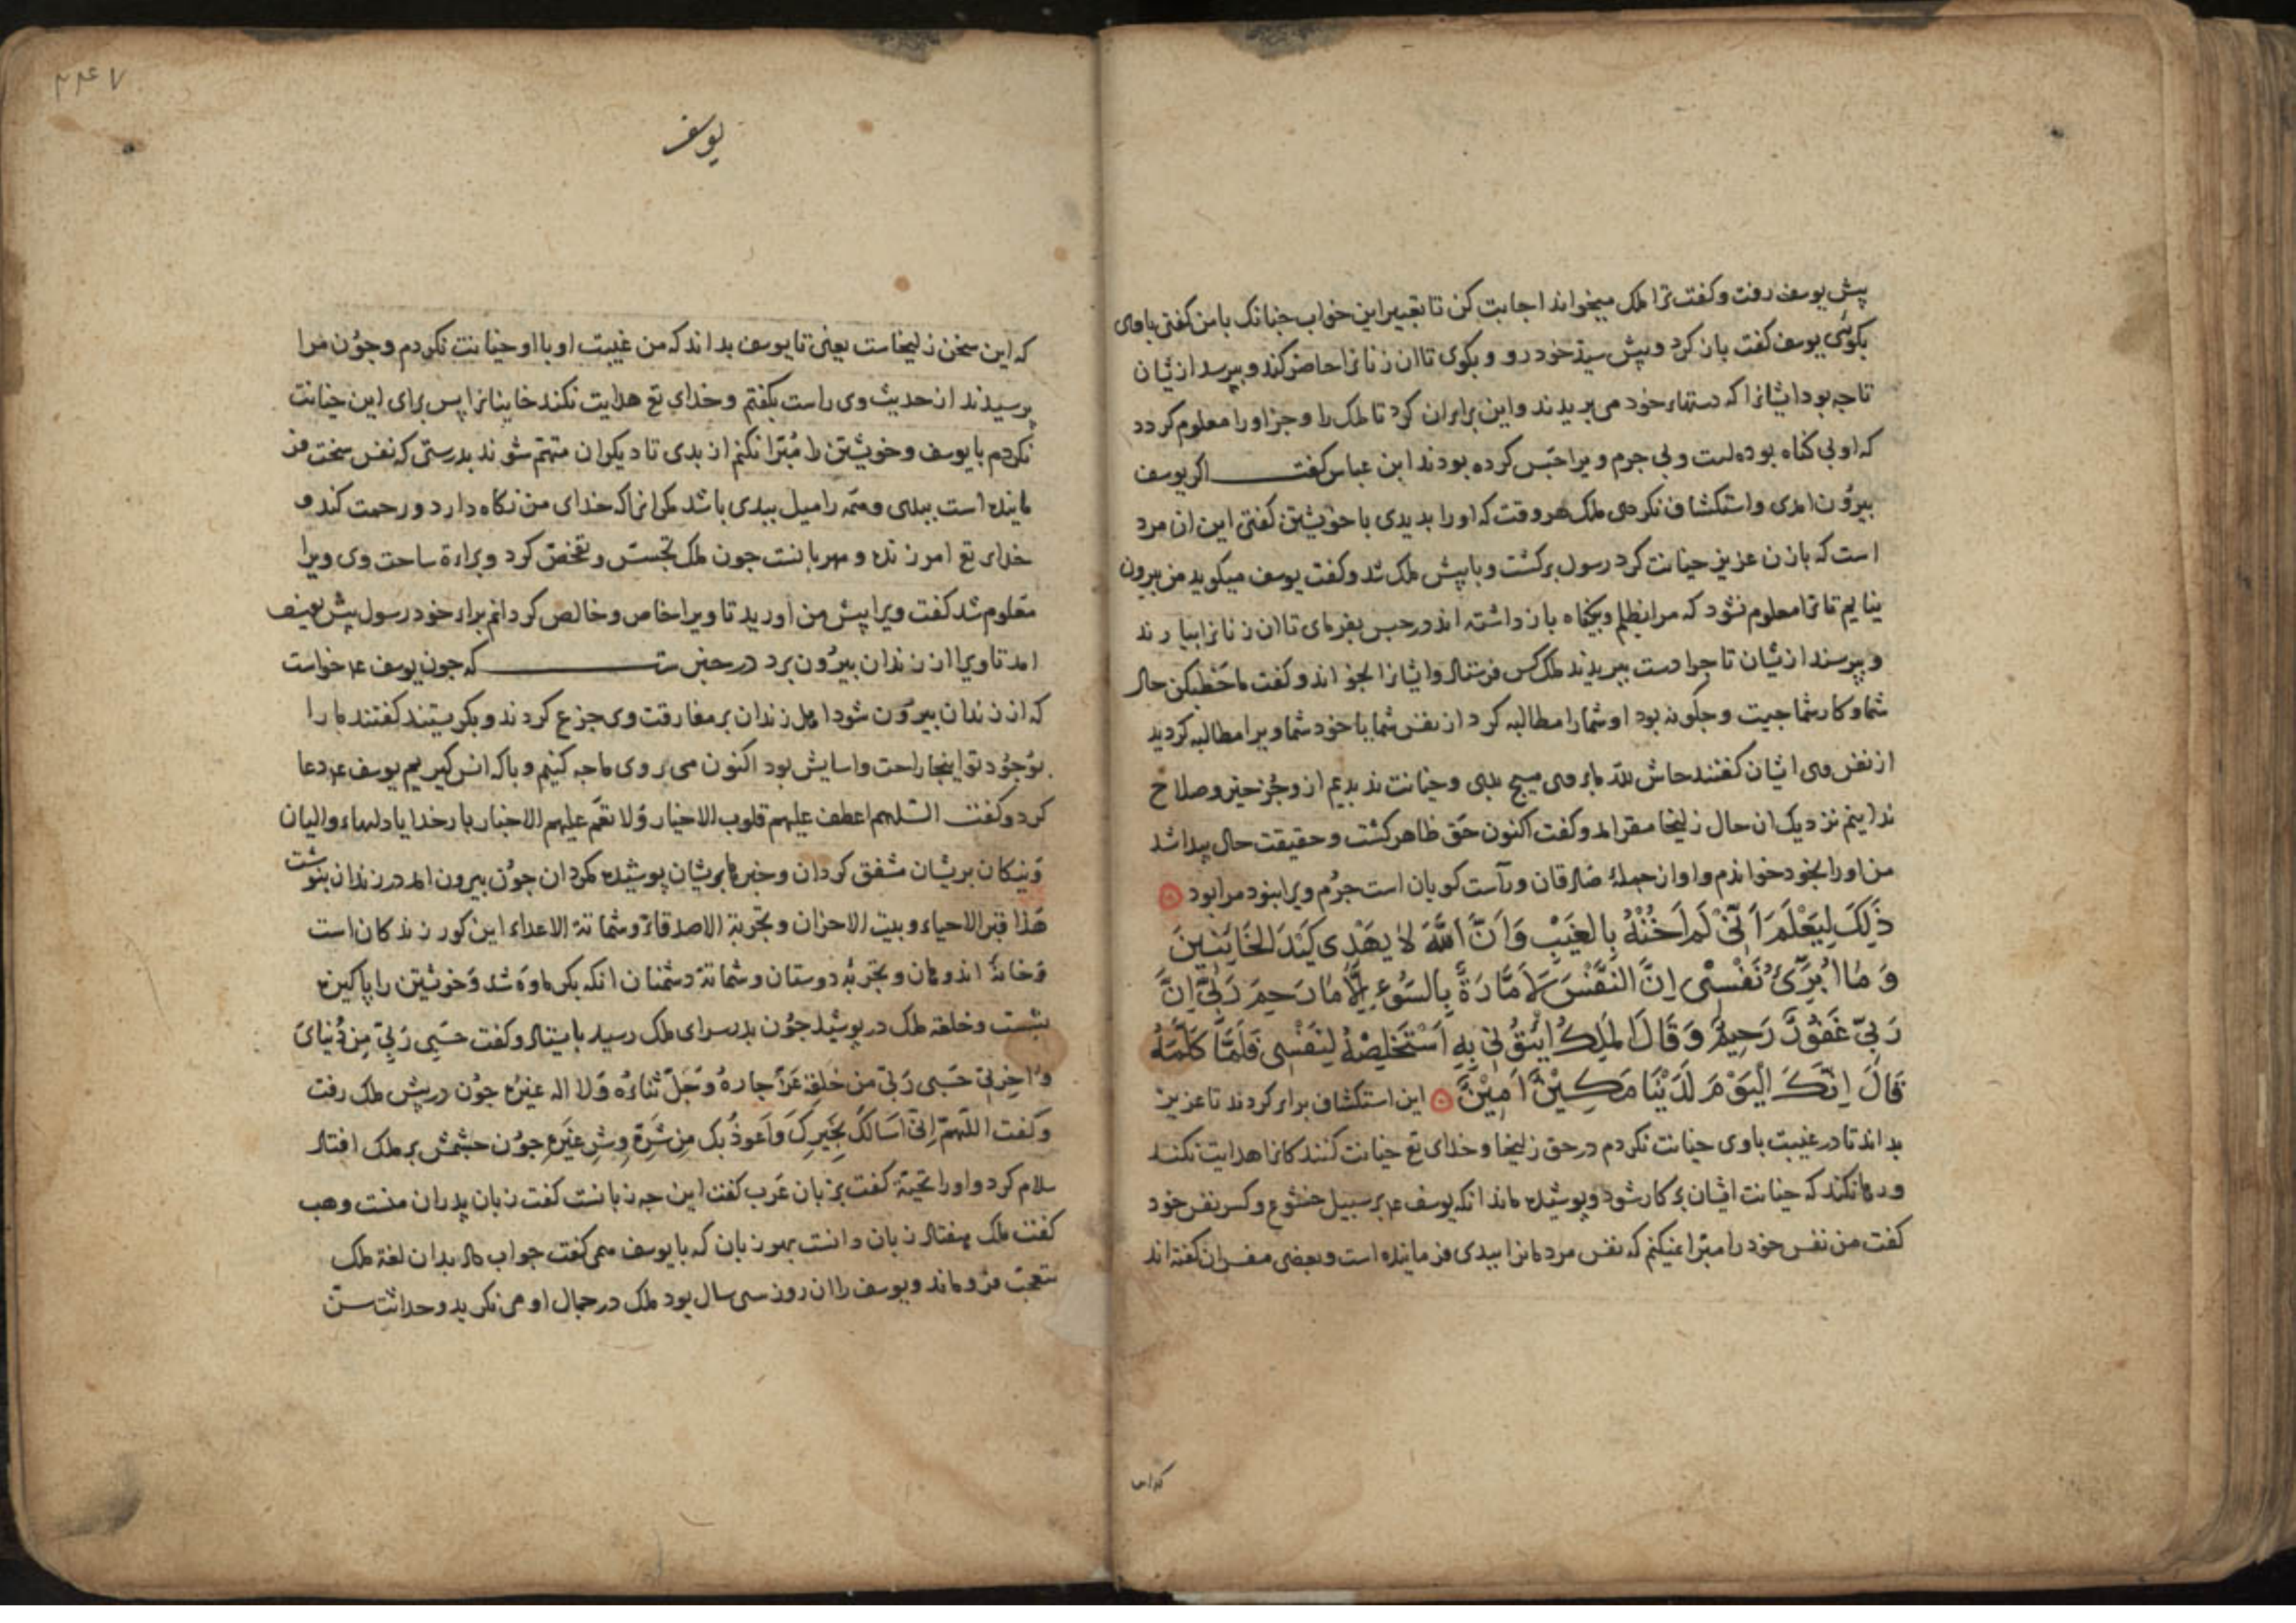 پیش یوسف رفت و کفت ترا ملک میخواند اجابت کن تا تعبیر این خواب جنانک با من کفتی باوی
بکوئی یوسف کفت باز کرد و پیش سید خود رو و بکوی تا ان زنانرا حاضر کند و بپرسد ازیشان
تا جه بود ایشانرا که دستهاء خود می بریدند و این برای ان کرد تا ملک را و جز او را معلوم کردد
که او بی کناه بوده است و بی جرم ویرا حبس کرده بودند ابن عباس کفت اکر یوسف
بیرون امدی و استکشاف نکردی ملک هر وقت که اورا بدیدی با خویشتن کفتی این ان مرد
است که با زن عزیز خیانت کرد رسول برکشت و با پیش ملک شد و کفت یوسف میکوید من بیرون
نیایم تا ترا معلوم نشود که مرا بظلم و بیکناه بازداشته اند در حبس بفرمای تا ان زنانرا بیارند
و بپرسند ازیشان تا جرا دست ببریدند ملک کس فرستاد و ایشانرا بخواند و کفت ما خطبکن حال
شما و کار شما جیست و جکونه بود او شما را مطالبه کرد از نفس شما یا خود شما ویرا مطالبه کردید
از نفس وی ایشان کفتند حاش لله ما بر وی هیچ بدی و خیانت ندیدیم از و جز خیر و صلاح
ندانیم نزدیک ان حال زلیخا مقر امد و کفت اکنون حق ظاهر کشت و حقیقت حال پیدا شد
من اورا بخود خواندم و او از جملهٔ صادقان و راست کویان است جرم ویرا نبود مرا بود
ذَلِكَ لِيَعْلَمَ اَنِّي لَمْ اَخُنْهُ بِالْغَيْبِ وَاَنَّ اللَّهَ لَا يَهْدِي كَيْدَ الْخَائِنِينَ
وَمَا اُبَرِّئُ نَفْسِي اِنَّ النَّفْسَ لَاَمَّارَةٌ بِالسُّوءِ اِلَّا مَا رَحِمَ رَبِّي اِنَّ
رَبِّي غَفُورٌ رَحِيمٌ وَقَالَ الْمَلِكُ ائْتُونِي بِهِ اَسْتَخْلِصْهُ لِنَفْسِي فَلَمَّا كَلَّمَهُ
قَالَ اِنَّكَ الْيَوْمَ لَدَيْنَا مَكِينٌ اَمِينٌ این استکشاف برای کردند تا عزیز
بداند تا در غیبت باوی خیانت نکردم در حق زلیخا و خدای تع خیانت کنندکانرا هدایت نکند
و رها نکند که خیانت ایشان بر کار شود و پوشیده ماند انکه یوسف عم بر سبیل خشوع و کسر نفس خود
کفت من نفس خود را مبرا نمیکنم که نفس مردمانرا ببدی فرماینده است و بعضی مفسران کفته اند
که این
۲۴۷
یوسف
که این سخن زلیخاست یعنی تا یوسف بداند که من غیبت او با او خیانت نکردم و جون مرا
پرسیدند از حدیث وی راست بکفتم و خدای تع هدایت نکند خاینانرا پس برای این خیانت
نکردم با یوسف و خویشتن را مبرا نکنم از بدی تا دیکران متهم شوند بدرستی که نفس سخت فر
ماینده است ببدی و همه را میل ببدی باشد مکر انرا که خدای من نکاه دارد و رحمت کند و
خدای تع امرزنده و مهربانست جون ملک تجسس و تفحص کرد و براءة ساحت وی ویرا
معلوم شد کفت ویرا پیش من اورید تا ویرا خاص و خالص کردانم براء خود رسول پیش یوسف
امد تا ویرا از زندان بیرون برد در خبر ست که جون یوسف عم خواست
که از زندان بیرون شود اهل زندان بر مفارقت وی جزع کردند و بکریستند کفتند ما را
بوجود تو اینجا راحت و اسایش بود اکنون می روی ما جه کنیم و با که انس کیریم یوسف عم دعا
کرد و کفت اللهم اعطف علیهم قلوب الاخیار و لا تعم علیهم الاخبار بار خدایا دلهاء والیان
و نیکان بریشان مشفق کردان و خبرها بریشان پوشیده مکردان جون بیرون امد در زندان بنوشت
هذا قبر الاحیاء و بیت الاحزان و تجربة الاصدقاء و شماتة الاعداء این کور زندکان است
و خانهٔ اندوهان و تجربهٔ دوستان و شماتة دشمنان انکه بکرماوه شد و خویشتن را پاکیزه
بشست و خلعة ملک در پوشید جون بدر سرای ملک رسید بایستاد و کفت حسبی ربی من دنیای
و اخرتی حسبی ربی من خلقه عز جاره و جل ثناؤه و لا اله غیره جون در پیش ملک رفت
و کفت اللهم انی اسالک بخیرک و اعوذ بک من شره و شر غیره جون جشمش بر ملک افتاد
سلام کرد و اورا تحیة کفت بزبان عرب کفت این جه زبانست کفت زبان پدران منست وهب
کفت ملک هفتاد زبان دانست بهر زبان که با یوسف می کفت جواب داد بدان لغة ملک
متعجب فرو ماند و یوسف را ان روز سی سال بود ملک در جمال او می نکرید و حداثت سن